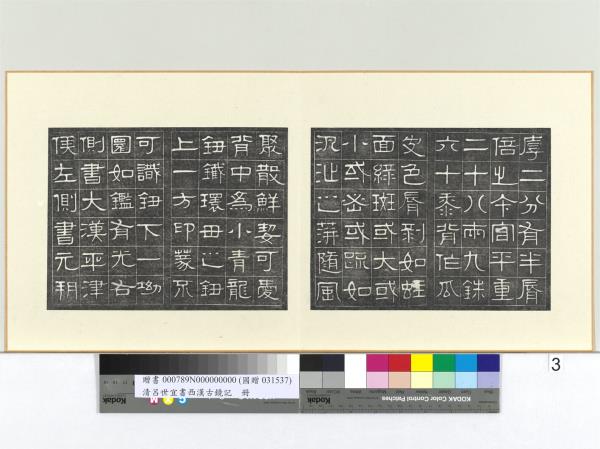 厚二分有半脣
倍之今官平重
二十八兩九銖
六十黍背作瓜
皮色脣剥如蛙
面綠斑或大或
小或密或疏如
沉沚之萍隨風
聚散鮮契可愛
背中為小青龍
鈕鐵環毌之鈕
上一方印篆不
可識鈕下一坳
圓如鑑有光右
側書大漢平津
侯左側書元朔
3
贈書 000789N000000000 (國贈 031537)
清呂世宜書西漢古鏡記 冊
Kodak
KODAK Color Control Patches